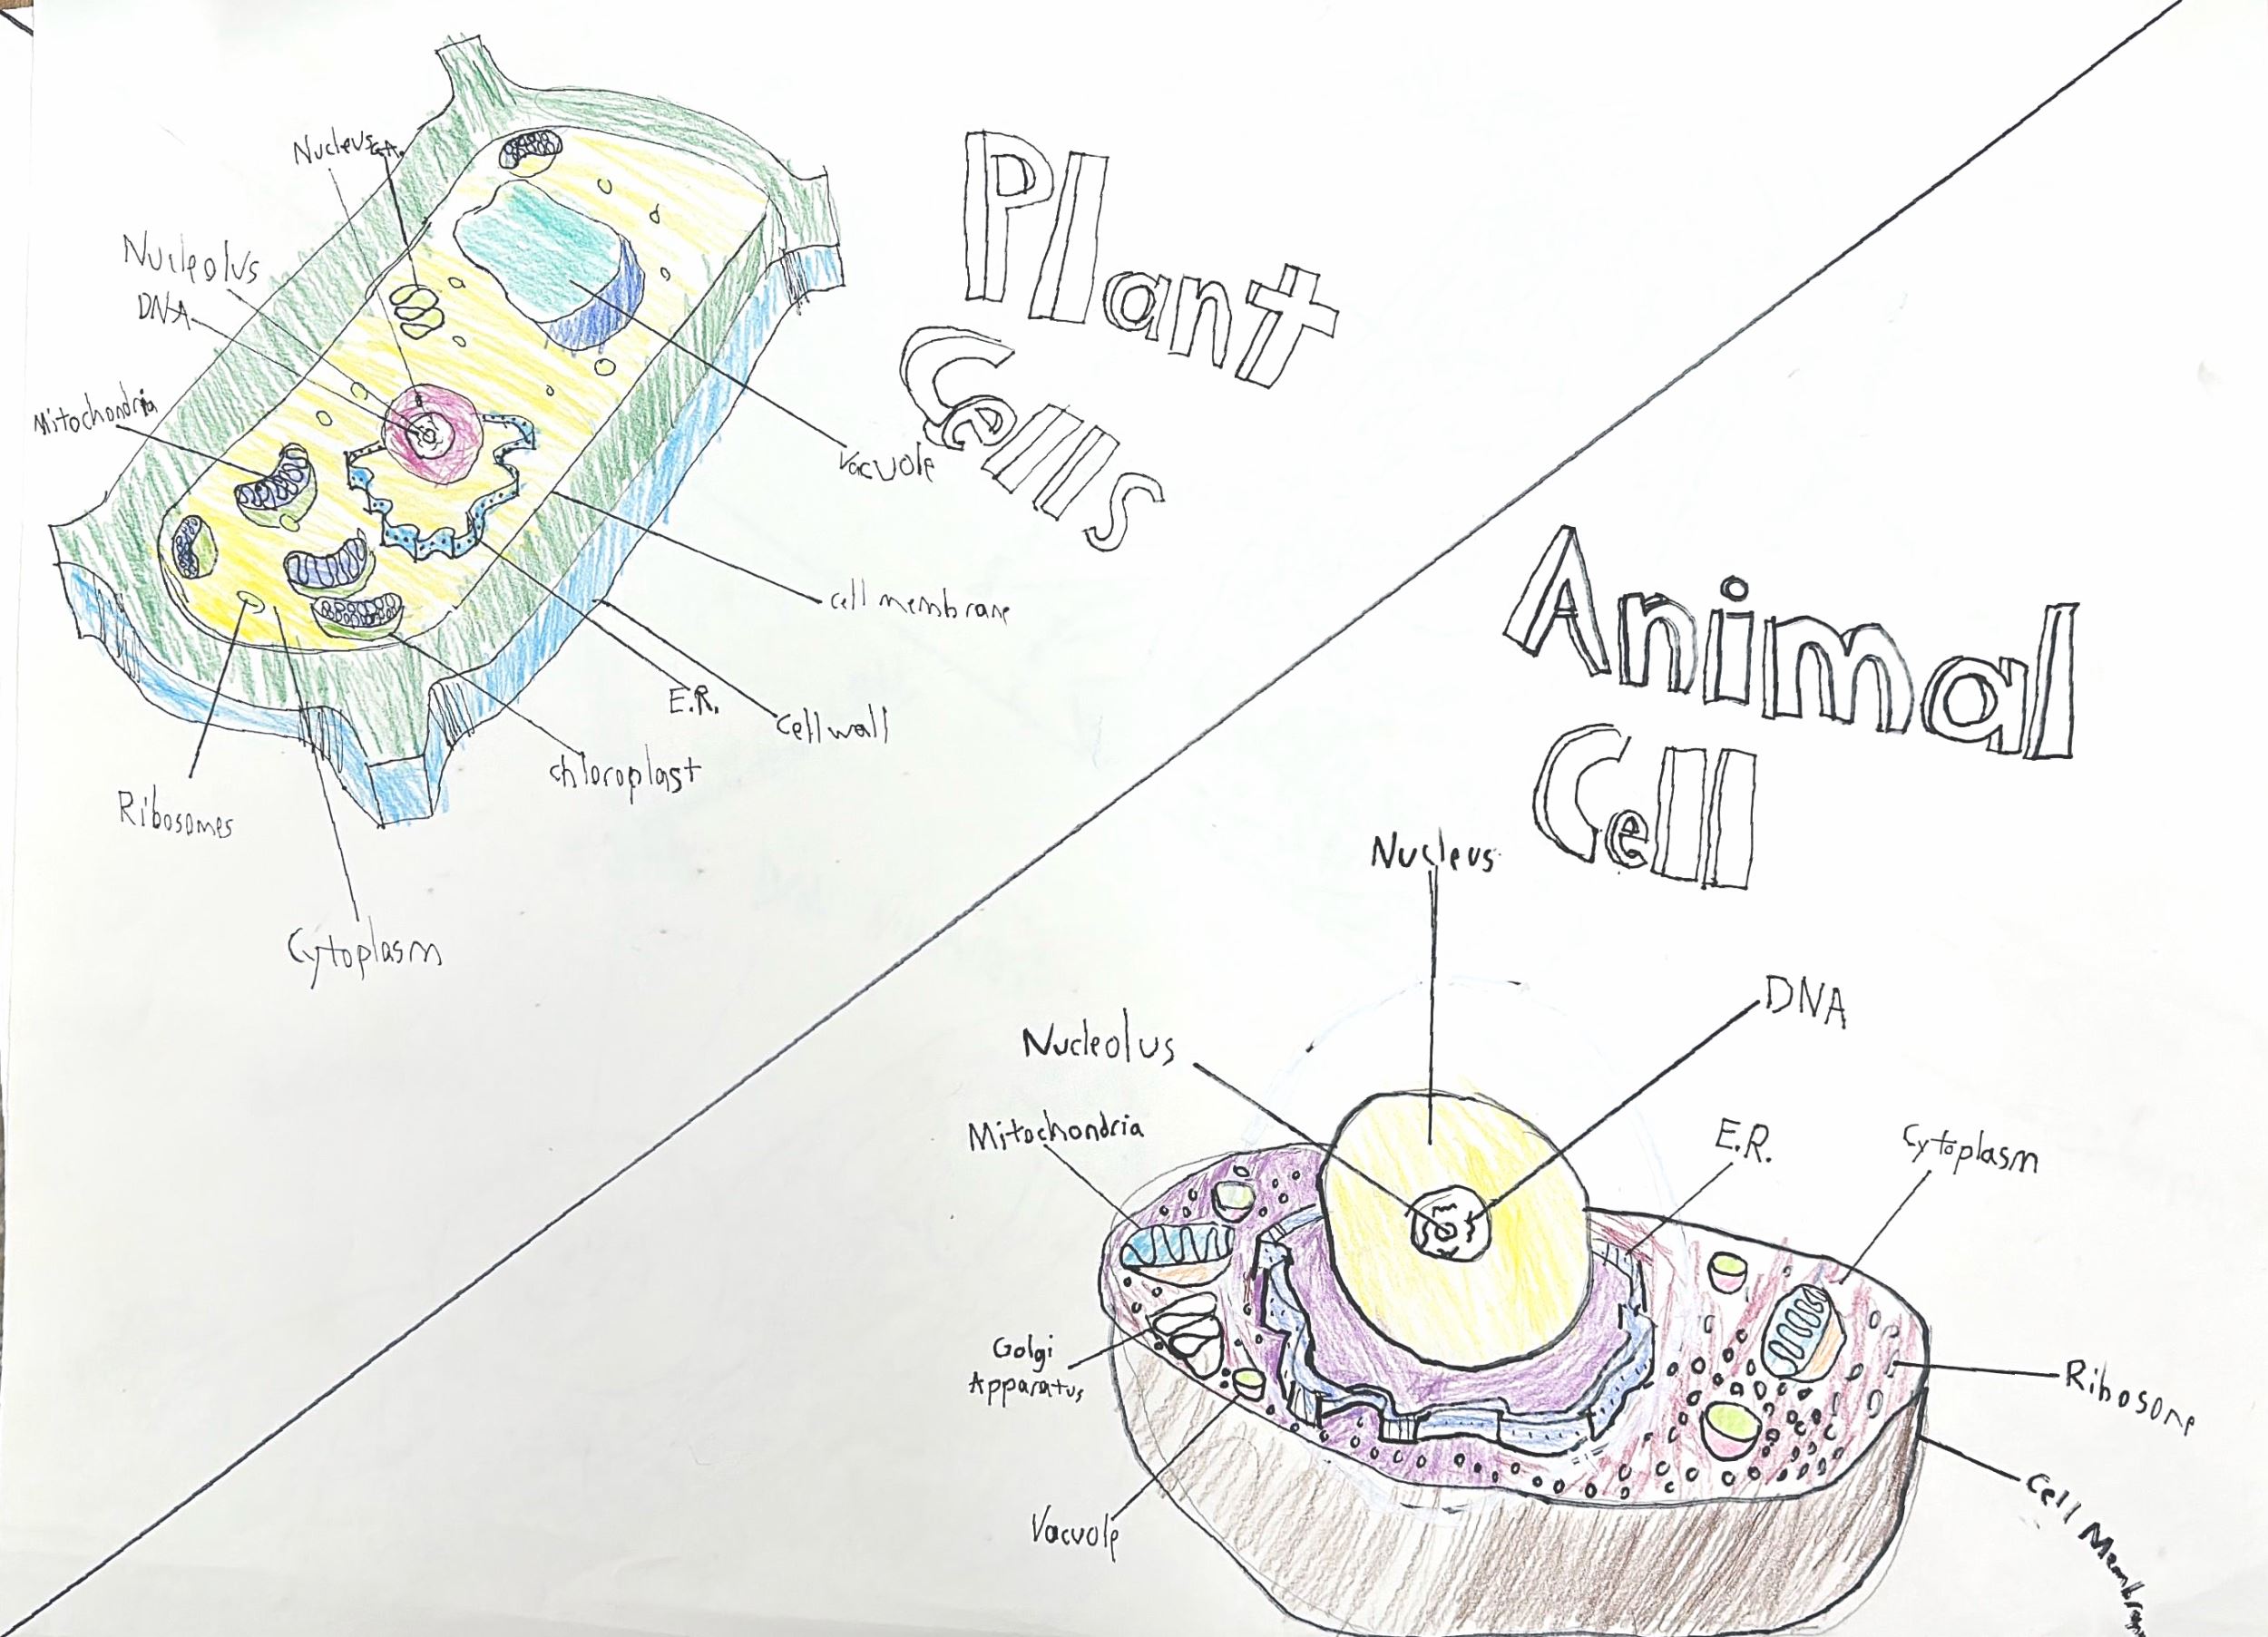 Plant
Cells
Nucleus
G.A.
Nucleolus
DNA
Mitochondria
Vacuole
cell membrane
E.R.
Cell wall
chloroplast
Ribosomes
Cytoplasm
Animal
Cell
Nucleus
DNA
Nucleolus
Mitochondria
E.R.
Cytoplasm
Golgi
Apparatus
Ribosome
Vacuole
Cell Membrane